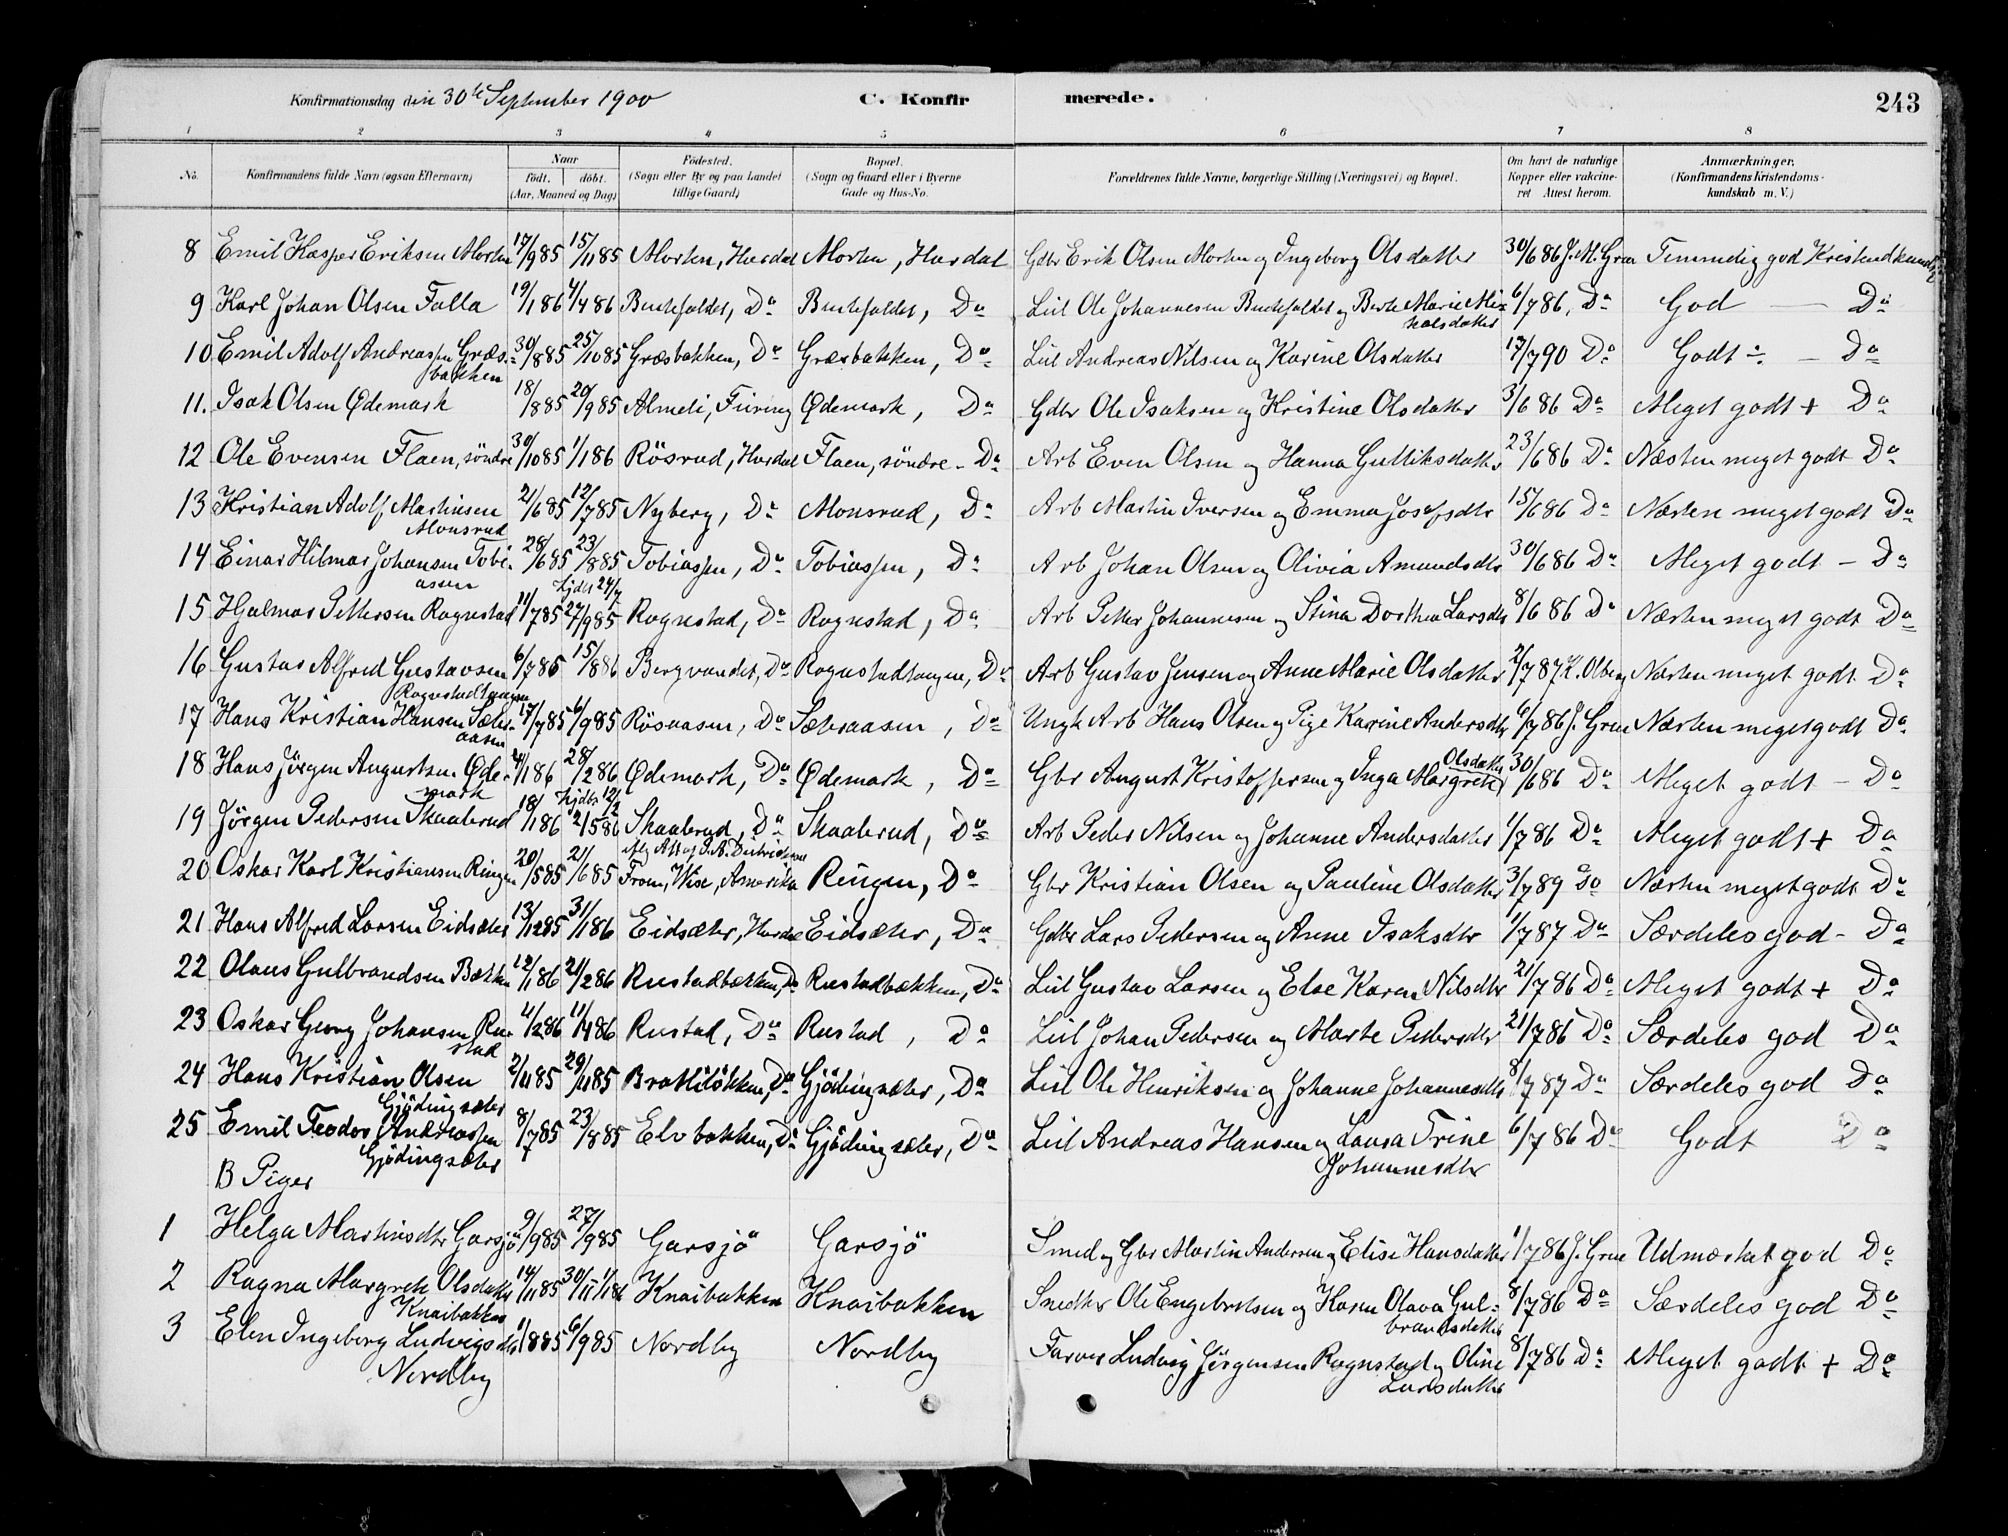 Konfirmationsdag den 30te September 1900 C. Konfir merede. 243
1 2 3 4 5 6 7 8
No. Konfirmandens fulde Navn (ogsaa Efternavn) Naar født. døbt. (Aar, Maaned og Dag) Fødested. (Sogn eller By og paa Landet tillige Gaard) Bopæl. (Sogn og Gaard eller i Byerne Gade og Hus-No. Forældrenes fulde Navne, borgerlige Stilling (Næringsvei) og Bopæl. Om havt de naturlige Kopper eller vakcineret Attest herom. Anmærkninger. (Konfirmandens Kristendomskundskab m. V.)
8 Emil Kasper Eriksen Morten 17/985 15/1185 Morten, Hurdal Morten, Hurdal Gdbr Erik Olsen Morten og Ingeborg Olsdatter 30/686 J. M. Grue Temmelig god Kristendkundsk
9 Karl Johan Olsen Falla 19/186 4/486 Butefaldet, Do Butefaldet, Do Leil Ole Johannesen Butefaldet og Berte Marie Mikkelsdatter 6/786, Do God — Do
10 Emil Adolf Andreassen Græsbakken 30/885 25/1085 Græsbakken, Do Græsbakken, Do Leil Andreas Nilsen og Karine Olsdatter 17/790 Do Godt ÷ — Do
11. Isak Olsen Ødemark 18/885 20/985 Almeli, Furing Ødemark, Do Gdbr Ole Isaksen og Kristine Olsdatter 3/686 Do Meget godt + Do
12 Ole Evensen Flaen, søndre 30/1085 1/186 Rösrud, Hurdal Flaen, søndre - Do Arb Even Olsen og Hanna Gulliksdatter 23/686 Do Næsten meget godt Do
13 Kristian Adolf Martinsen Monsrud 21/685 12/785 Nyberg, Do Monsrud, Do Arb Martin Iversen og Emma Josefsdtr 15/686 Do Næsten meget godt Do
14 Einar Hilmar Johansen Tobiasen 28/685 23/885 Tobiassen, Do Tobiassen, Do Arb Johan Olsen og Olivia Amundsdtr 30/686 Do Meget godt — Do
15 Hjalmar Pettersen Rognstad 11/785 hjdbt 24/7 27/985 Rognstad, Do Rognstad, Do Arb Petter Johannesen og Stina Dorthea Larsdtr 8/686 Do Næsten meget godt Do
16 Gustav Alfred Gustavsen Rognstadtangen 6/785 15/886 Bergvandet, Do Rognstadtangen, Do Arb Gustav Jensen og Anne Marie Olsdatter 2/787 K. Olberg Næsten meget godt Do
17 Hans Kristian Hansen Sæteraasen 17/785 6/985 Rösaasen, Do Sæteraasen, Do Ungk Arb Hans Olsen og Pige Karine Andersdtr 6/786 J. Grue Næsten meget godt Do
18 Hans Jörgen Augustsen Ødemark 24/186 28/286 Ødemark, Do Ødemark, Do Gbr August Kristoffersen og Inga Margrete Olsdatter 30/686 Do Meget godt — Do
19 Jörgen Pedersen Skaalerud 18/186 hjdbt 12/2 2/586 Skaalerud, Do Skaalerud, Do Arb Peder Nilsen og Johanne Andersdatter 1/786 Do Meget godt + Do
20 Oskar Karl Kristiansen Ringen 20/585 21/685 From, Wisc, Amerika Ringen, Do Gbr Kristian Olsen og Pauline Olsdatter 3/789 Do Næsten meget godt Do
21 Hans Alfred Larsen Eidsæter 13/1285 31/186 Eidsæter, Hurdal Eidsæter, Do Gdbr Lars Pedersen og Anne Isaksdtr 1/787 Do Særdeles god - Do
22 Olaus Gulbrandsen Bækken 12/186 21/286 Rustadbækken, Do Rustadbækken, Do Leil Gustav Larsen og Else Karen Nilsdtr 21/786 Do Meget godt + Do
23 Oskar Georg Johansen Rustad 11/286 11/486 Rustad, Do Rustad, Do Leil Johan Pedersen og Marte Pedersdtr 21/786 Do Særdeles god Do
24 Hans Kristian Olsen Gjödingsæter 2/1185 29/1185 Bratlilökken, Do Gjödingsæter, Do Leil Ole Henriksen og Johanne Johannesdtr 8/787 Do Særdeles god Do
25 Emil Teodor Andreassen Gjödingsæter 8/785 23/885 Elvbakken, Do Gjödingsæter, Do Leil Andreas Hansen og Laura Trine Johannesdtr 6/786 Do Godt Do
B Piger
1 Helga Martinsdtr Garsjö 9/985 27/985 Garsjö Garsjö Smed og Gbr Martin Andersen og Elise Hansdatter 1/786 J. Grue Udmærket god Do
2 Ragna Margrete Olsdatter Knaibakken 14/1185 30/11 1/186 Knaibakken Knaibakken Snedker Ole Engebretsen og Karen Olava Gulbrandsdatter 8/786 Do Særdeles god Do
3 Elen Ingeborg Ludvigsdtr Nordby 1/885 6/985 Nordby Nordby Farver Ludvig Jörgensen Rognstad og Oline Larsdatter 8/786 Do Meget godt + Do